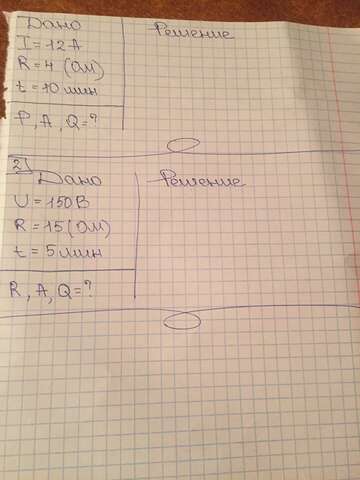 Дано
Решение
I = 12 А
R = 4 (Ом)
t = 10 мин
P, A, Q = ?
2)
Дано
Решение
U = 150 В
R = 15 (Ом)
t = 5 мин
R, A, Q = ?